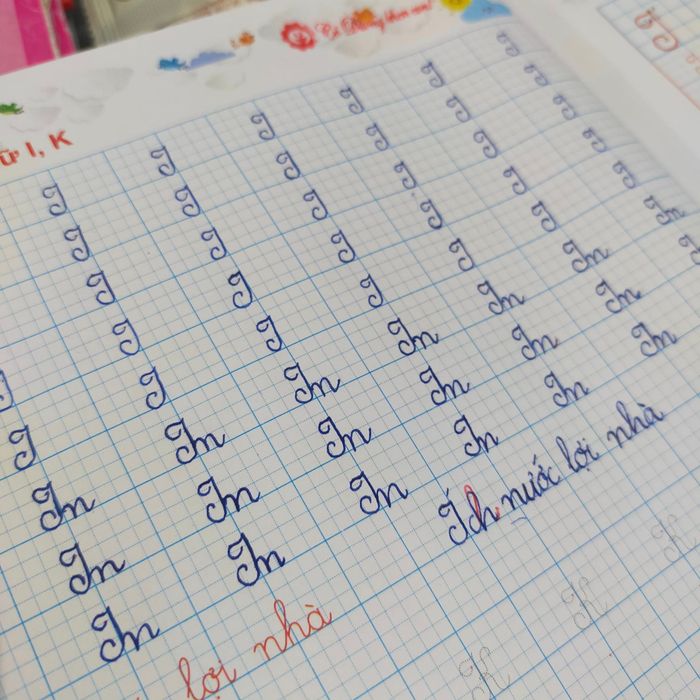 ữ I, K
I I I I I I
I I I I I I
I I I I I I
I I I I I I I
I I I I I I I
In In In In In In In
In In In In In In I
In In In In In In
lợi nhà Ích nước lợi nhà
K K K